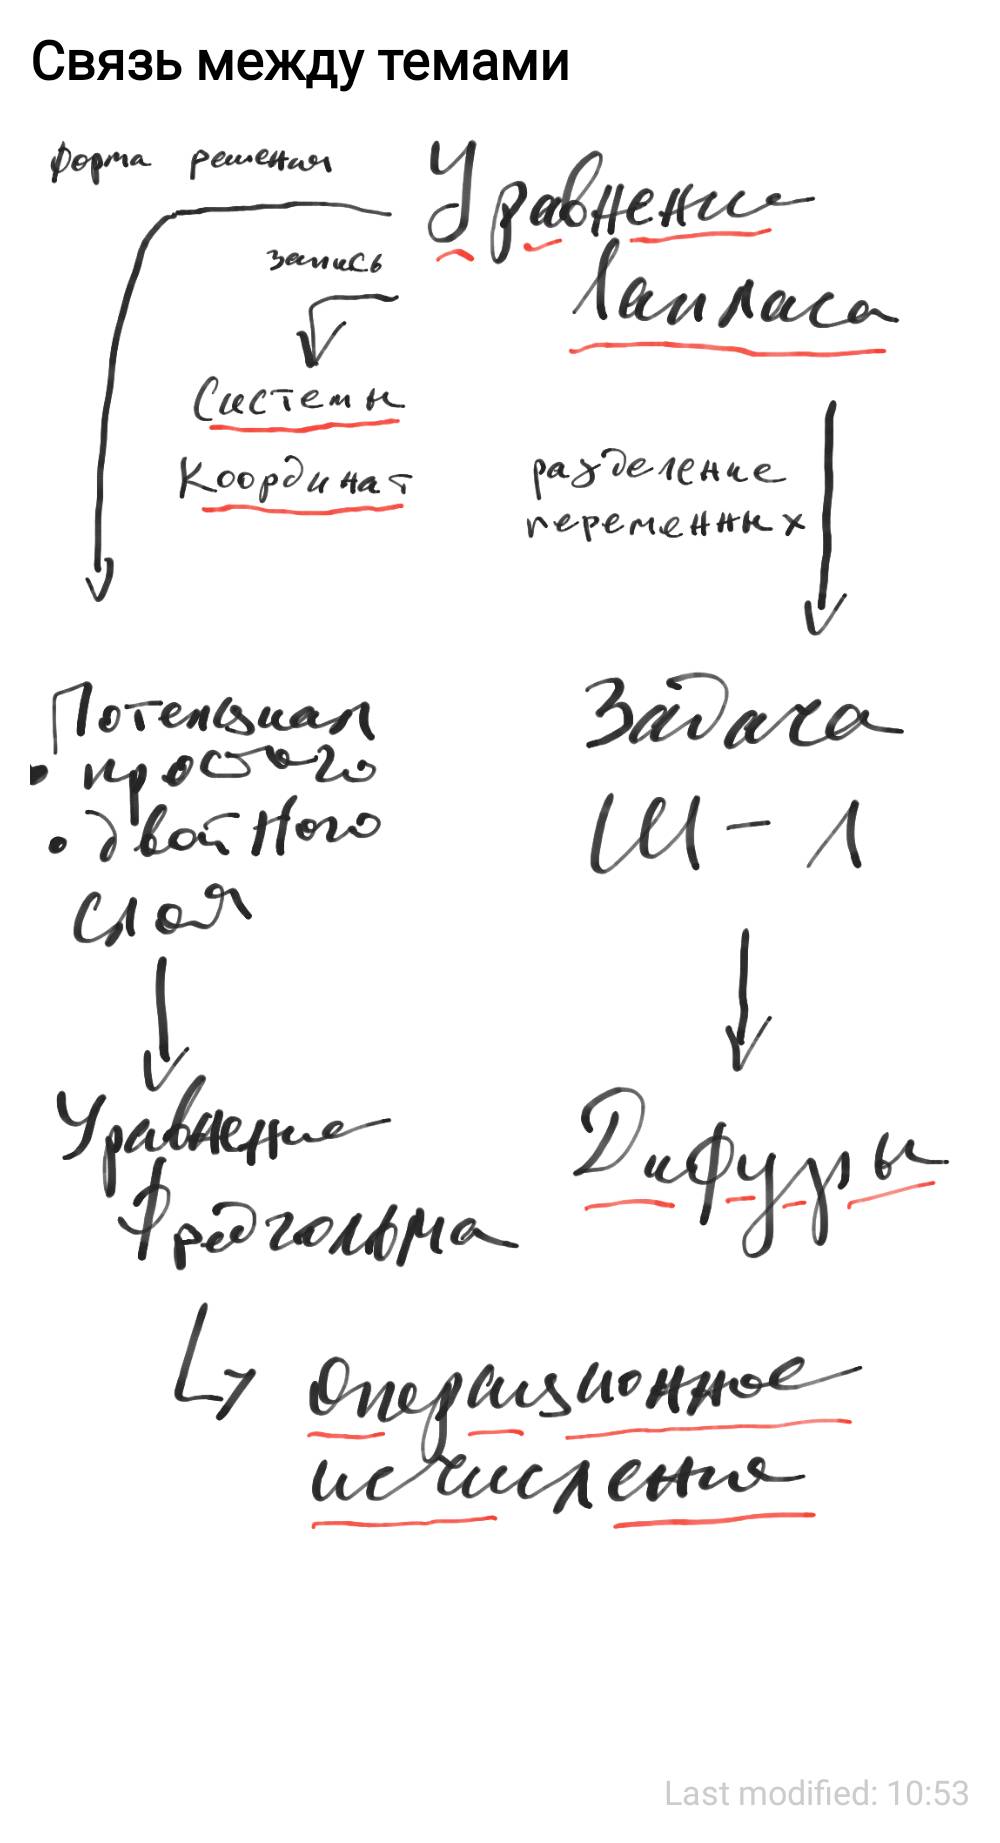 Связь между темами
форма решения
Уравнение
запись
Лапласа
Системы
Координат
разделение
переменных
Потенциал
• простого
• двойного
слоя
Задача
Ш-Л
Уравнение
Фредгольма
Дифуры
Операционное
исчисление
Last modified: 10:53